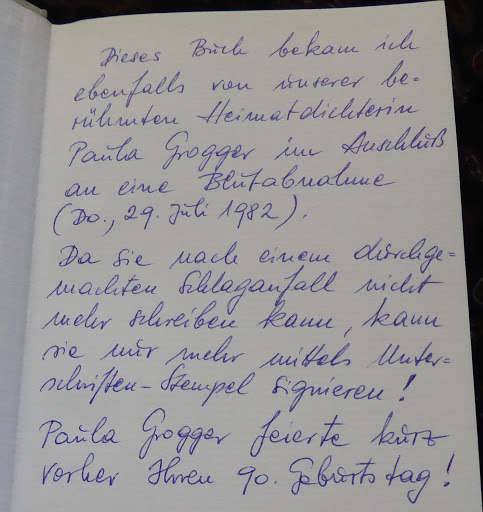 Dieses Buch bekam ich
ebenfalls von unserer be-
rühmten Heimatdichterin
Paula Grogger im Anschluß
an eine Blutabnahme
(Do., 29. Juli 1982).
Da sie nach einem durchge-
machten Schlaganfall nicht
mehr schreiben kann, kann
sie nur mehr mittels Unter-
schriften-Stempel signieren!
Paula Grogger feierte kurz
vorher Ihren 90. Geburtstag!